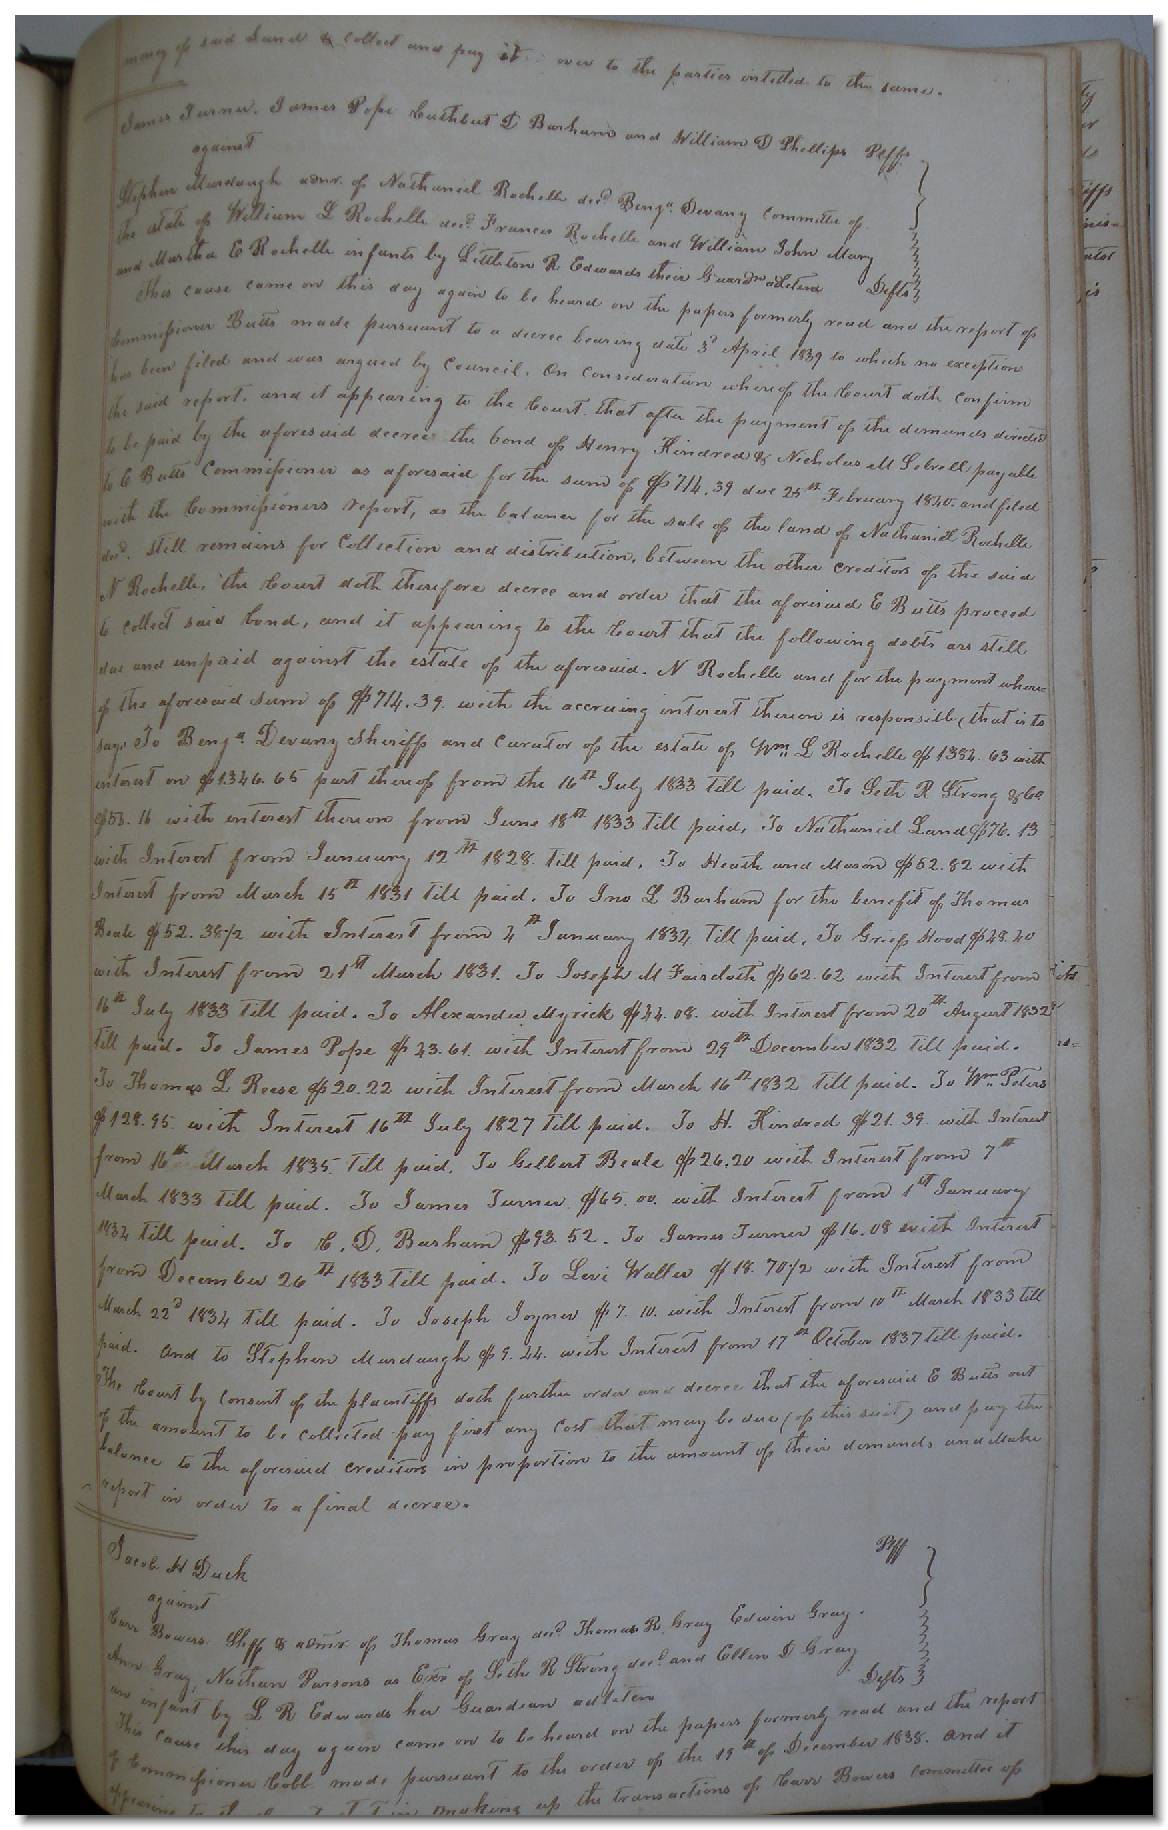 money of said Land & collect and pay it over to the parties intitled to the same.
James Turner. James Pope Cuthbert D Barham and William D Phillips Plffs
against
Stephen Murdaugh admr. of Nathaniel Rochelle decd. Benja. Devany Committe of
the estate of William L Rochelle decd. Francis Rochelle and William John Mary
and Martha E Rochelle infants by Littleton R Edwards their Guardn adLitem Defts
This cause came on this day again to be heard on the papers formerly read and the report of
Commissioner Butts made pursuant to a decree bearing date 3d April 1839 to which no exception
has been filed and was argued by Council. On Consideration whereof the Court doth confirm
the said report. and it appearing to the Court that after the payment of the demands directed
to be paid by the aforesaid decree the bond of Henry Kindred & Nicholas M Sebrell payable
to E Butts Commissioner as aforesaid for the sum of $714.39 due 25th February 1840. and filed
with the Commissioners report, as the balance for the sale of the land of Nathaniel Rochelle
decd. still remains for Collection and distribution, between the other creditors of the said
N Rochelle, the Court doth therefore decree and order that the aforesaid E Butts proceed
to collect said bond, and it appearing to the Court that the following debts are still
due and unpaid against the estate of the aforesaid. N Rochelle and for the payment where=
of the aforesaid sum of $714.39. with the accruing interest thereon is responsible, (that is to
say. To Benja. Devany Sheriff and Curator of the estate of Wm. L Rochelle $1384.63 with
interest on $1346.65 part thereof from the 16th July 1833 till paid. To Seth R Strong & Co
$53.16 with interest thereon from June 18th 1833 Till paid, To Nathaniel Land $76.13
with Interest from January 12th 1828. till paid. To Heath and Mason $52.82 with
Interest from March 15th 1831 Till paid. To Jno L Barham for the benefit of Thomas
Beale $52.38 1/2 with Interest from 4th January 1834 Till paid, To Grief Hood $48.40
with Interest from 21st March 1831. To Joseph M Faircloth $62.62 with Interest from
16th July 1833 till paid. To Alexander Myrick $44.08. with Interest from 20th August 1832
Till paid. To James Pope $43.61. with Interest from 29th December 1832 till paid.
To Thomas L Reese $20.22 with Interest from March 16th 1832 Till paid. To Wm. Peters
$128.95. with Interest 16th July 1827 till paid. To H. Kindred $21.39. with Interest
from 16th March 1835. Till paid. To Gelbert Beale $26.20 with Interest from 7th
March 1833 till paid. To James Turner $65.00. with Interest from 1st January
1834 till paid. To C. D. Barham $93.52. To James Turner $16.08 with Interest
from December 26th 1833 till paid. To Levi Waller $18.70 1/2 with Interest from
March 22d 1834 till paid. To Joseph Joyner $7.10. with Interest from 10th March 1833 till
paid. And to Stephen Murdaugh $9.44. with Interest from 17th October 1837 till paid.
The Court by Consent of the plaintiffs doth further order and decree that the aforesaid E Butts out
of the amount to be collected pay first any cost that may be due (of this suit) and pay the
balance to the aforesaid creditors in proportion to the amount of their demands and Make
report in order to a final decree.
Jacob H Duck Plff
against
Carr Bowers. Shff & admr. of Thomas Gray decd. Thomas R. Gray Edwin Gray.
Ann Gray, Nathan Parsons as Exr of Seth R Strong decd. and Ellen D Gray
an infant by L R Edwards her Guardian adLitem Defts
This cause this day again came on to be heard on the papers formerly read and the report
of Commissioner Cobb made pursuant to the order of the 19th of December 1838. and it
appearing to the Court that in making up the transactions of Carr Bowers committee of